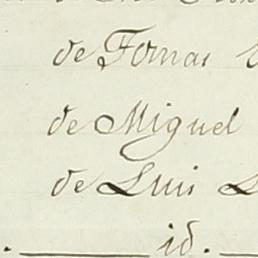 de Tomas
de Miguel
de Luis
id.